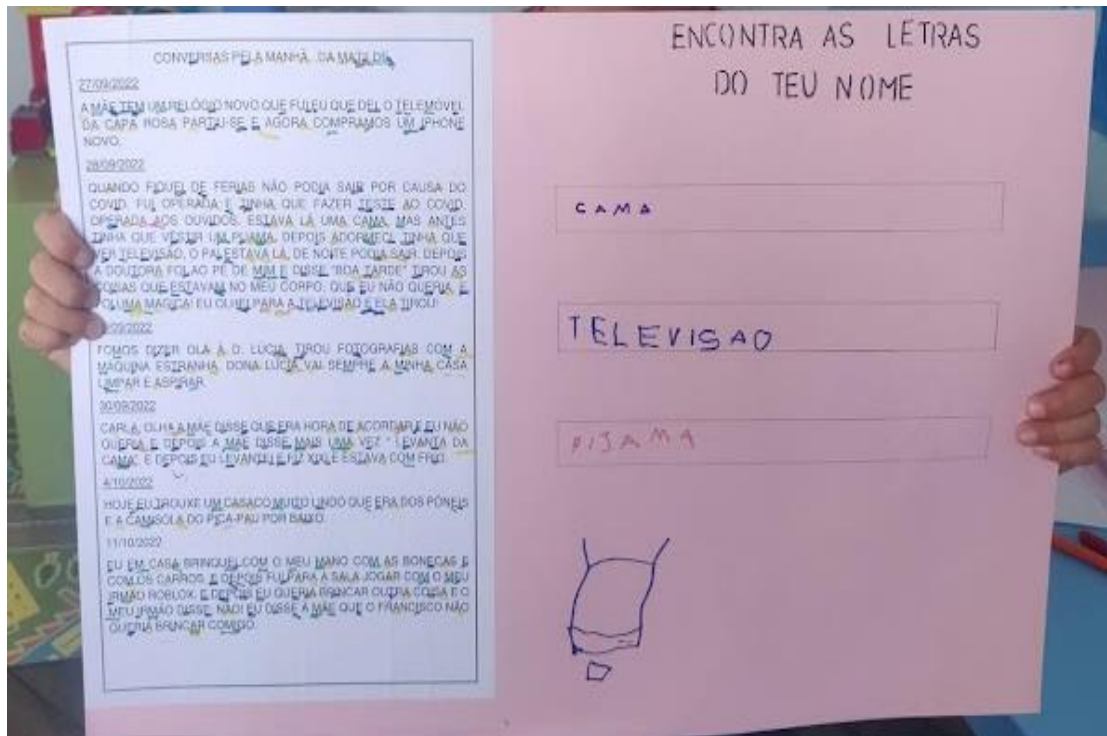 CONVERSAS PELA MANHÃ DA MATILDE
27/09/2022
A MÃE TEM UM RELÓGIO NOVO QUE FUI EU QUE DEI, O TELEMÓVEL
DA CAPA ROSA PARTIU-SE E AGORA COMPRAMOS UM IPHONE
NOVO.
28/09/2022
QUANDO FIQUEI DE FÉRIAS NÃO PODIA SAIR POR CAUSA DO
COVID. FUI OPERADA E TINHA QUE FAZER TESTE AO COVID.
OPERADA AOS OUVIDOS. ESTAVA LÁ UMA CAMA, MAS ANTES
TINHA QUE VESTIR UM PIJAMA, DEPOIS ADORMECI, TINHA QUE
VER TELEVISÃO, O PAI ESTAVA LÁ, DE NOITE PODIA SAIR. DEPOIS
A DOUTORA FOI AO PÉ DE MIM E DISSE "BOA TARDE" TIROU AS
COISAS QUE ESTAVAM NO MEU CORPO, QUE EU NÃO QUERIA, E
UMA MAGICA! EU OLHEI PARA A TELEVISÃO E ELA TIROU!
/09/2022
FOMOS DIZER OLÁ À D. LÚCIA, TIROU FOTOGRAFIAS COM A
MÁQUINA ESTRANHA. DONA LÚCIA VAI SEMPRE A MINHA CASA
LIMPAR E ASPIRAR.
30/09/2022
CARLA, OLHA A MÃE DISSE QUE ERA HORA DE ACORDAR E EU NÃO
QUERIA E DEPOIS A MÃE DISSE MAIS UMA VEZ " LEVANTA DA
CAMA". E DEPOIS EU LEVANTEI E FIZ XIXI E ESTAVA COM FRIO.
4/10/2022
HOJE EU TROUXE UM CASACO MUITO LINDO QUE ERA DOS PÓNEIS
E A CAMISOLA DO PICA-PAU POR BAIXO.
11/10/2022
EU EM CASA BRINQUEI COM O MEU MANO COM AS BONECAS E
COM OS CARROS. E DEPOIS FUI PARA A SALA JOGAR COM O MEU
IRMÃO ROBLOX. E DEPOIS EU QUERIA BRINCAR OUTRA COISA E O
MEU IRMÃO DISSE: NÃO! EU DISSE A MÃE QUE O FRANCISCO NÃO
QUERIA BRINCAR COMIGO.
ENCONTRA AS LETRAS
DO TEU NOME
CAMA
TELEVISAO
PIJAMA